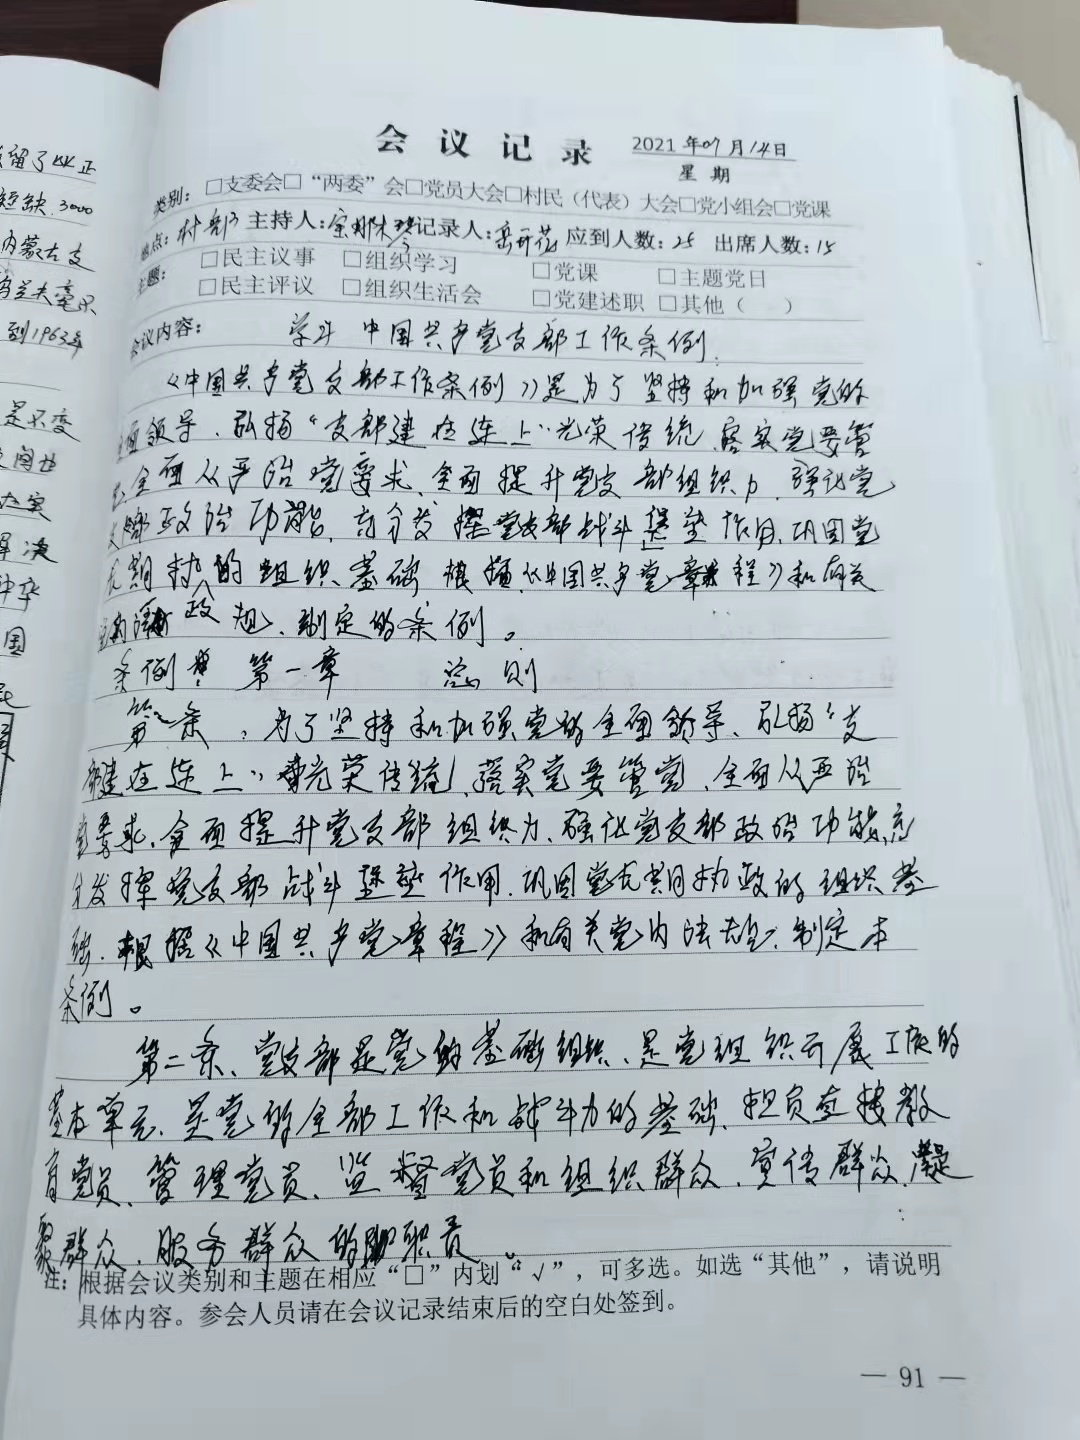 会议记录
2021年07月14日
星期
类别：□支委会□“两委”会□党员大会□村民（代表）大会□党小组会□党课
地点：村部 主持人： 记录人：岳开花 应到人数：25 出席人数：15
主题：□民主议事 □组织学习 □党课 □主题党日
□民主评议 □组织生活会 □党建述职 □其他（ ）
会议内容： 学习 中国共产党支部工作条例.
《中国共产党支部工作条例》是为了坚持和加强党的
全面领导、弘扬“支部建在连上”光荣传统、落实党要管
党、全面从严治党要求、全面提升党支部组织力、强化党
支部政治功能、充分发挥党支部战斗堡垒作用、巩固党
长期执的组织基础 根据《中国共产党章程》和有关
政规、制定的条例。
条例 第一章 总则
第一条，为了坚持和加强党的全面领导、弘扬“支
部建在连上”光荣传统、落实党要管党、全面从严治
党要求、全面提升党支部组织力、强化党支部政治功能、充
分发挥党支部战斗堡垒作用、巩固党长期执政的组织基
础、根据《中国共产党章程》和有关党内法规、制定本
条例。
第二条、党支部是党的基础组织、是党组织开展工作的
基本单元、是党的全部工作和战斗力的基础、担负直接教
育党员、管理党员、监督党员和组织群众、宣传群众、凝
聚群众、服务群众的职责。
注：根据会议类别和主题在相应“□”内划“√”，可多选。如选“其他”，请说明
具体内容。参会人员请在会议记录结束后的空白处签到。
— 91 —
留了
短缺.3000
内蒙古支
到1963年
是不变
中华
国